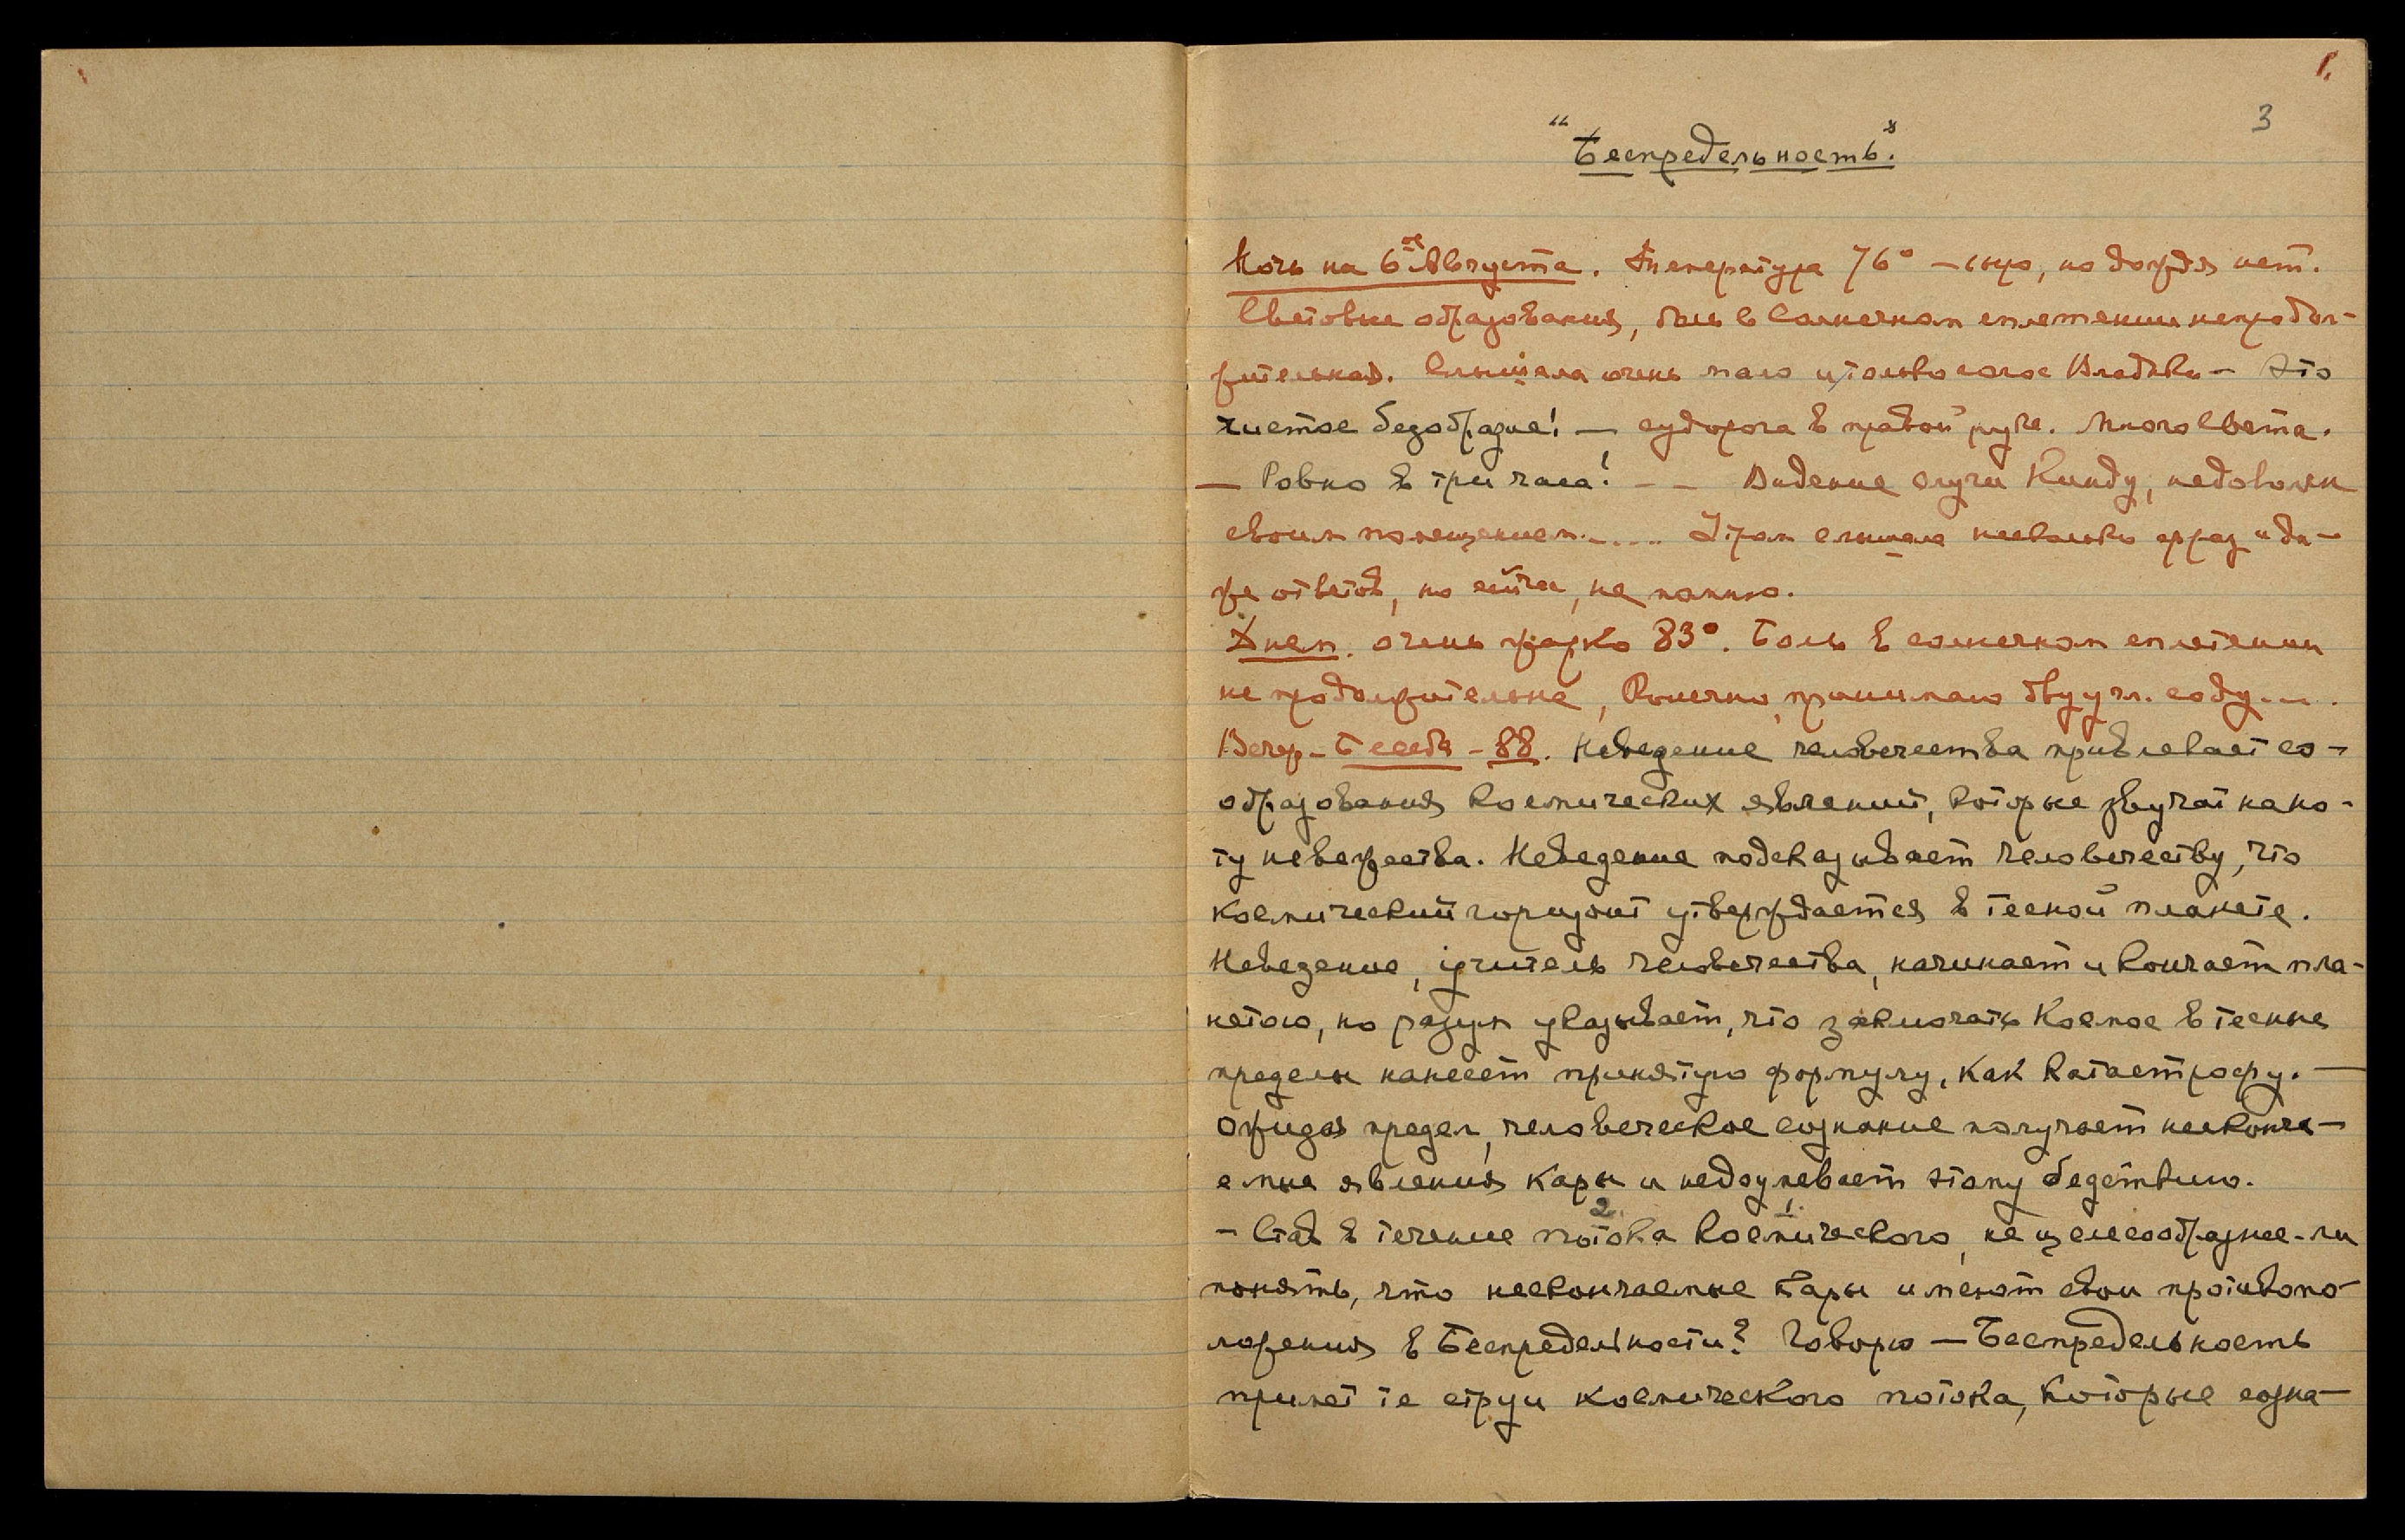 1.
3
"Беспредельность".
Ночь на 6ое Августа. Температура 76° — сыро, но дождя нет.
Световые образования, боль в Солнечном сплетении непродол-
жительная. Слышала очень мало и только голос Владыки — Это
чистое безобразие! — судорога в правой руке. Много света.
— Ровно в три часа! — — Видение слуги Хинду, недоволен
своим помещением..... Утром слышала несколько фраз и да-
же ответов, но сейчас, не помню.
Днем. очень жарко 83°. Боль в солнечном сплетении
не продолжительна, конечно, принимаю двууgл. соду....
Вечер - Беседа - 88. Неведение человечества привлекает со-
образования космических явлений, которые звучат на но-
ту невежества. Неведение подсказывает человечеству, что
космический горизонт утверждается в тесной планете.
Неведение, учитель человечества, начинает и кончает пла-
нетою, но разум указывает, что заключать Космос в тесные
пределы нанесет принятую формулу, как катастрофу. —
Ожидая предел, человеческое сознание получает нескончa-
емые явления кары и недоумевает этому бедствию.
2. 1.
- Став в течение потока космического, не целесообразнее-ли
понять, что нескончаемые кары имеют свои противопо-
ложения в Беспредельности? Говорю — Беспредельность
примет те струи космического потока, которые созна-